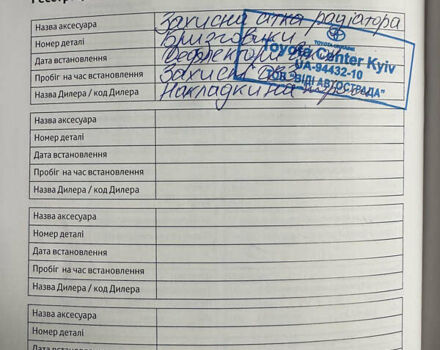 Назва аксесуара Захисна сітка радіатора
Номер деталі Бризговики
Дата встановлення Дефлектори
Пробіг на час встановлення Захист
Назва Дилера / код Дилера Накладки на
TOYOTA
Toyota Center Kyiv
UA-94432-10
ТОВ "ВІДІ АВТОСТРАДА"
Назва аксесуара
Номер деталі
Дата встановлення
Пробіг на час встановлення
Назва Дилера / код Дилера
Назва аксесуара
Номер деталі
Дата встановлення
Пробіг на час встановлення
Назва Дилера / код Дилера
Назва аксесуара
Номер деталі